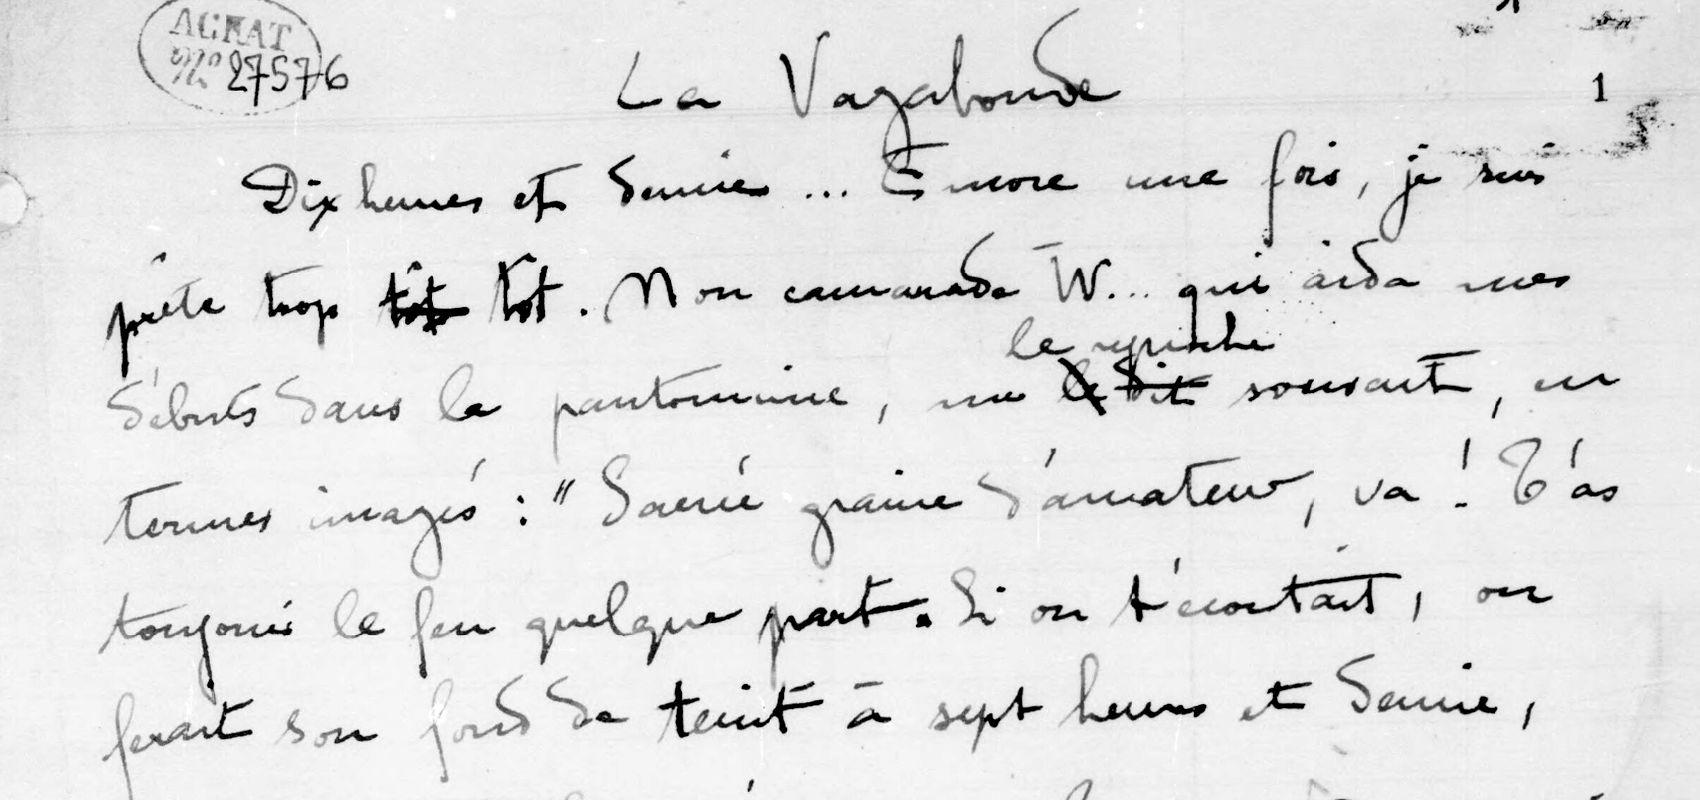 ACHAT
N° 27576
La Vagabonde
1
Dix heures et demie ... Encore une fois, je suis
prête trop tôt tôt. Mon camarade W... qui aida mes
le reproche
débuts dans la pantomime, me le dit souvent, en
termes imagés : "Sacrée graine d'amateur, va ! T'as
toujours le feu quelque part. Si on t'écoutait, on
ferait son fond de teint à sept heures et demie,